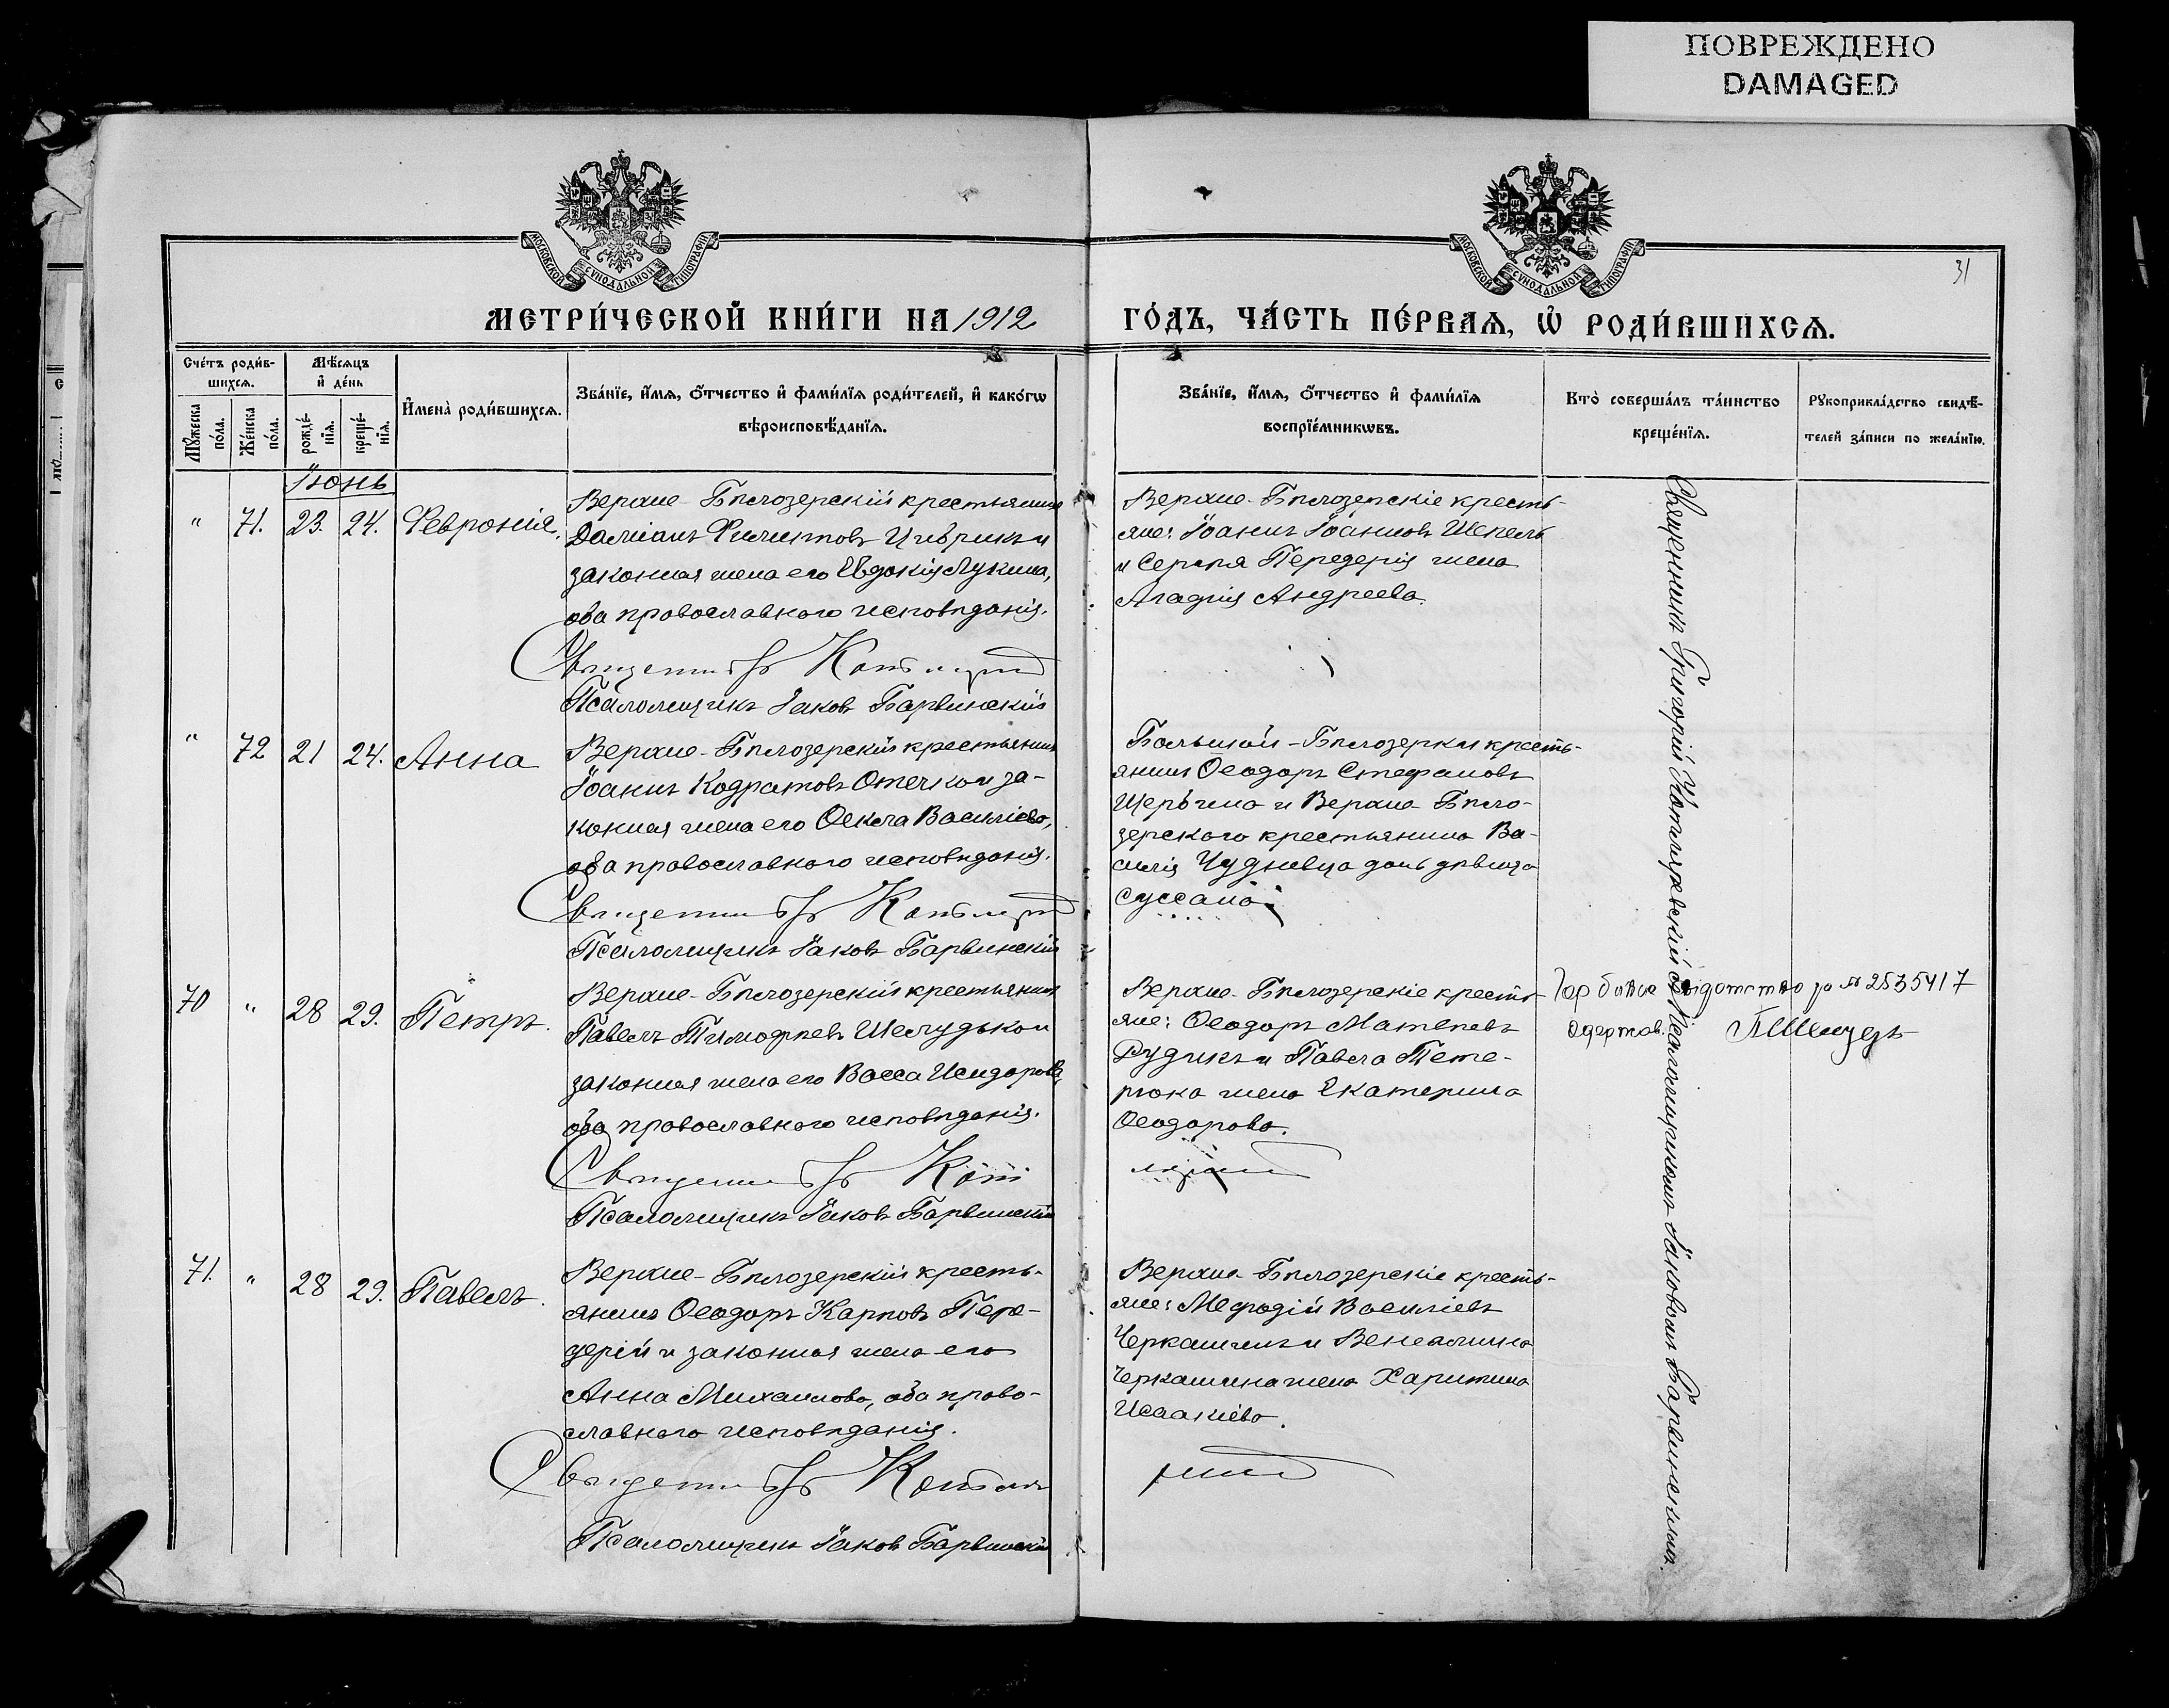 ПОВРЕЖДЕНО
DAMAGED
МОСКОВСКОЙ СѴНОДАЛЬНОЙ ТИПОГРАФІИ
МОСКОВСКОЙ СѴНОДАЛЬНОЙ ТИПОГРАФІИ
31
МЕТРИ́ЧЕСКОЙ КНИ́ГИ НА 1912
ГО́ДЪ, ЧА́СТЬ ПЕ́РВАѦ, Ѡ҆ РОДИ́ВШИХСѦ.
Сче́тъ роди́в-
шихсѧ.
Мꙋ́жеска
по́ла.
Же́нска
по́ла.
Мѣ́сѧцъ
и҆ де́нь
рожде́-
нїѧ.
креще́-
нїѧ.
И҆мена̀ роди́вшихсѧ.
Зва́нїе, и҆́мѧ, ѻ҆́тчество и҆ фами́лїѧ роди́телей, и҆ како́гѡ
вѣроисповѣ́данїѧ.
Зва́нїе, и҆́мѧ, ѻ҆́тчество и҆ фами́лїѧ
воспрїе́мникѡвъ.
Кто̀ соверша́лъ та́инство
креще́нїѧ.
Рꙋкоприкла́дство свидѣ́-
телей за́писи по жела́нїю.
Іюнь
" 71. 23. 24. Феврония.
Верхне-Бѣлозерскій крестьянинъ
Даміанъ Филиповъ Цибрикъ и
законная жена его Евдокія Лукина,
оба православнаго исповѣданія.
Священникъ
Псаломщикъ Іаковъ Барвинскій
Верхне-Бѣлозерскіе кресть-
яне: Іоаннъ Іоанновъ Шепель
и Сергѣя Передерія жена
Агафія Андреева.
" 72 21 24. Анна
Верхне-Бѣлозерскій крестьянинъ
Іоаннъ Кодратовъ Отечко и за-
конная жена его Ѳекла Василіева,
оба православнаго исповѣданія.
Священникъ
Псаломщикъ Іаковъ Барвинскій
Большой-Бѣлозерки кресть-
янинъ Ѳеодоръ Стефановъ
Щербина и Верхне-Бѣло-
зерскаго крестьянина Ва-
силія Чуднивца дочь дѣвица
Суссана.
70 " 28 29. Петръ.
Верхне-Бѣлозерскій крестьянинъ
Павелъ Тимофѣевъ Шелудько и
законная жена его Васса Исидорова,
оба православнаго исповѣданія.
Священникъ
Псаломщикъ Іаковъ Барвинскій
Верхне-Бѣлозерскіе кресть-
яне: Ѳеодоръ Матѳеевъ
Рудикъ и Павла Пете-
рюка жена Екатерина
Ѳеодорова.
за № 2535417
одержав.
71. " 28 29. Павелъ.
Верхне-Бѣлозерскій кресть-
янинъ Ѳеодоръ Карповъ Пере-
дерій и законная жена его
Анна Михаилова, оба право-
славнаго исповѣданія.
Священникъ
Псаломщикъ Іаковъ Барвинскій
Верхне-Бѣлозерскіе кресть-
яне: Меѳодій Василіевъ
Черкашинъ и Веніамина
Черкашина жена Харитина
Исаакіева.
Священникъ Григорій Котляревскій съ Псаломщикомъ Іаковомъ Барвинскимъ.